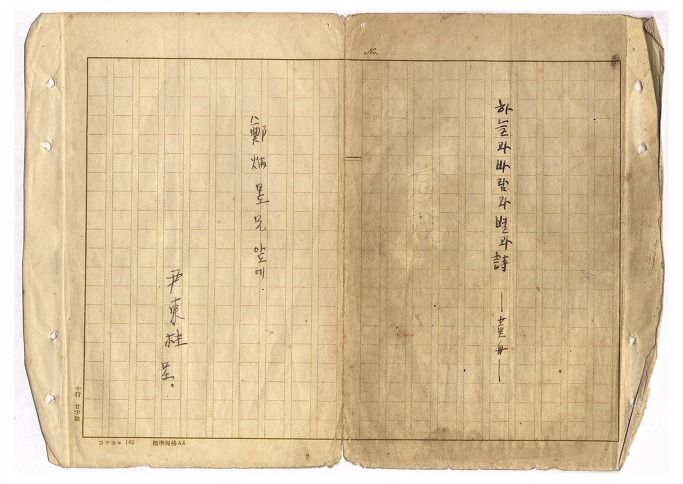 No.
하늘과 바람과 별과 詩
— 童舟 —
鄭炳昱兄 앞에.
尹東柱 呈.
十行 廿字詰
コクヨ
標準規格A4